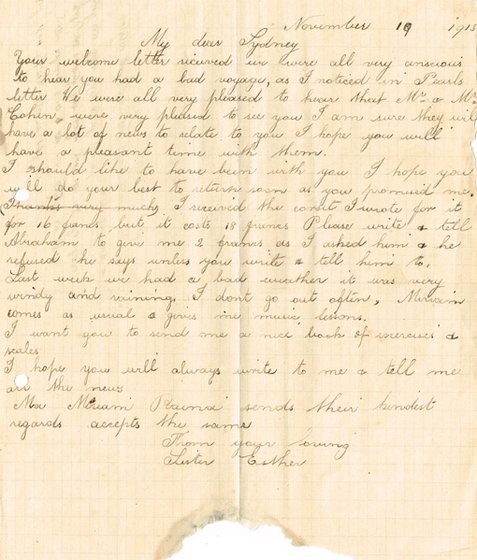 November 19 1915
My dear Sydney
Your welcome letter received we were all very anxious
to hear you had a bad voyage, as I noticed in Pearls
letter We were all very pleased to hear that Mr & Mrs
Cohen were very pleased to see you I am sure they will
have a lot of news to relate to you I hope you will
have a pleasant time with them.
I should like to have been with you I hope you
will do your best to return soon as you promised me.
(Thanks very much) I received the corset I wrote for it
for 16 francs but it costs 18 francs Please write & tell
Abraham to give me 2 francs as I asked him & he
refused he says unless you write & tell him to.
Last week we had a bad weather it was very
windy and raining. I dont go out often, Miriam
comes as usual & gives me music lessons.
I want you to send me a nice book of exercises &
scales
I hope you will always write to me & tell me
all the news
Ma Miriam sends their kindest
regards accepts the same
From your loving
Sister Esther